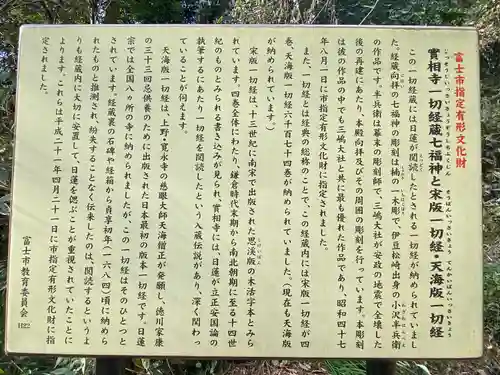 富士市指定有形文化財
實相寺 一切経蔵七福神と宋版一切経・天海版一切経
この一切経蔵には日蓮が閲読したとされる一切経が納められていまし
た。経蔵向拝の七福神の彫刻は楠の一木彫で、伊豆松崎出身の小沢半兵衛
の作品です。半兵衛は幕末の彫刻師で、三嶋大社が安政の地震で全壊した
後の再建にあたり、本殿向拝及びその周囲の彫刻を行っています。本彫刻
は彼の作品の中でも三嶋大社と共に最も優れた作品であり、昭和四十七
年八月一日に市指定有形文化財に指定されました。
また、一切経とは経典の総称のことで、この経蔵内には宋版一切経が四
巻、天海版一切経六千百七十四巻が納められていました。（現在も天海版
が納められています。）
宋版一切経は、十三世紀に南宋で出版された思溪版の木活字本とみら
れています。四巻全体にわたり、鎌倉時代末期から南北朝期に至る十四世
紀のものとみられる書き込みが見られ、實相寺には、日蓮が立正安国論の
執筆にあたり一切経を閲読したという入蔵伝説があり、深く関わっ
ていることが伺えます。
天海版一切経は、上野・寛永寺の慈眼大師天海僧正が発願し、徳川家康
の三十三回忌供養のために出版された日本最初の版本一切経です。日蓮
宗では全国八ヶ所の寺に納められましたが、この一切経はそのひとつと
されています。経蔵裏の石碑や経箱から貞享初年（一六八四）頃に納めら
れたものと推測され、紛失することなく伝来したのは、閲読するというよ
りも経蔵内に大切に安置して、日蓮を偲ぶことが重視されていたことに
よります。これらは平成二十一年四月二十一日に市指定有形文化財に指
定されました。
富士市教育委員会